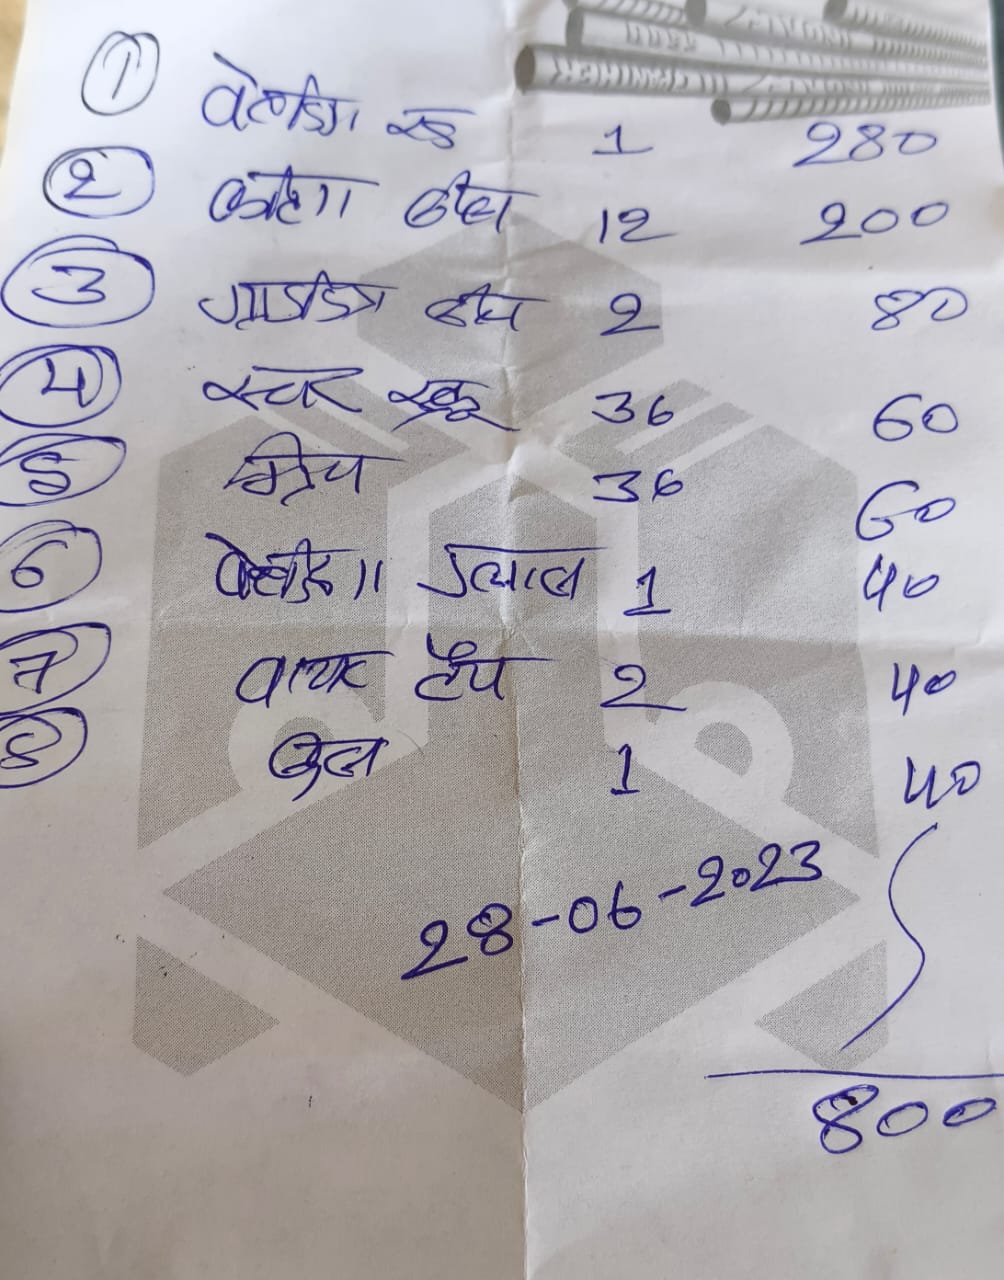 1 वेल्डिंग रड 1 280
2 कटिंग व्हील 12 200
3 ग्राइंडिंग व्हील 2 80
4 स्टार स्क्रू 36 60
5 ग्रिप 36 60
6 वेल्डिंग ग्लास 1 40
7 वायर टेप 2 40
8 1 40
28-06-2023
800